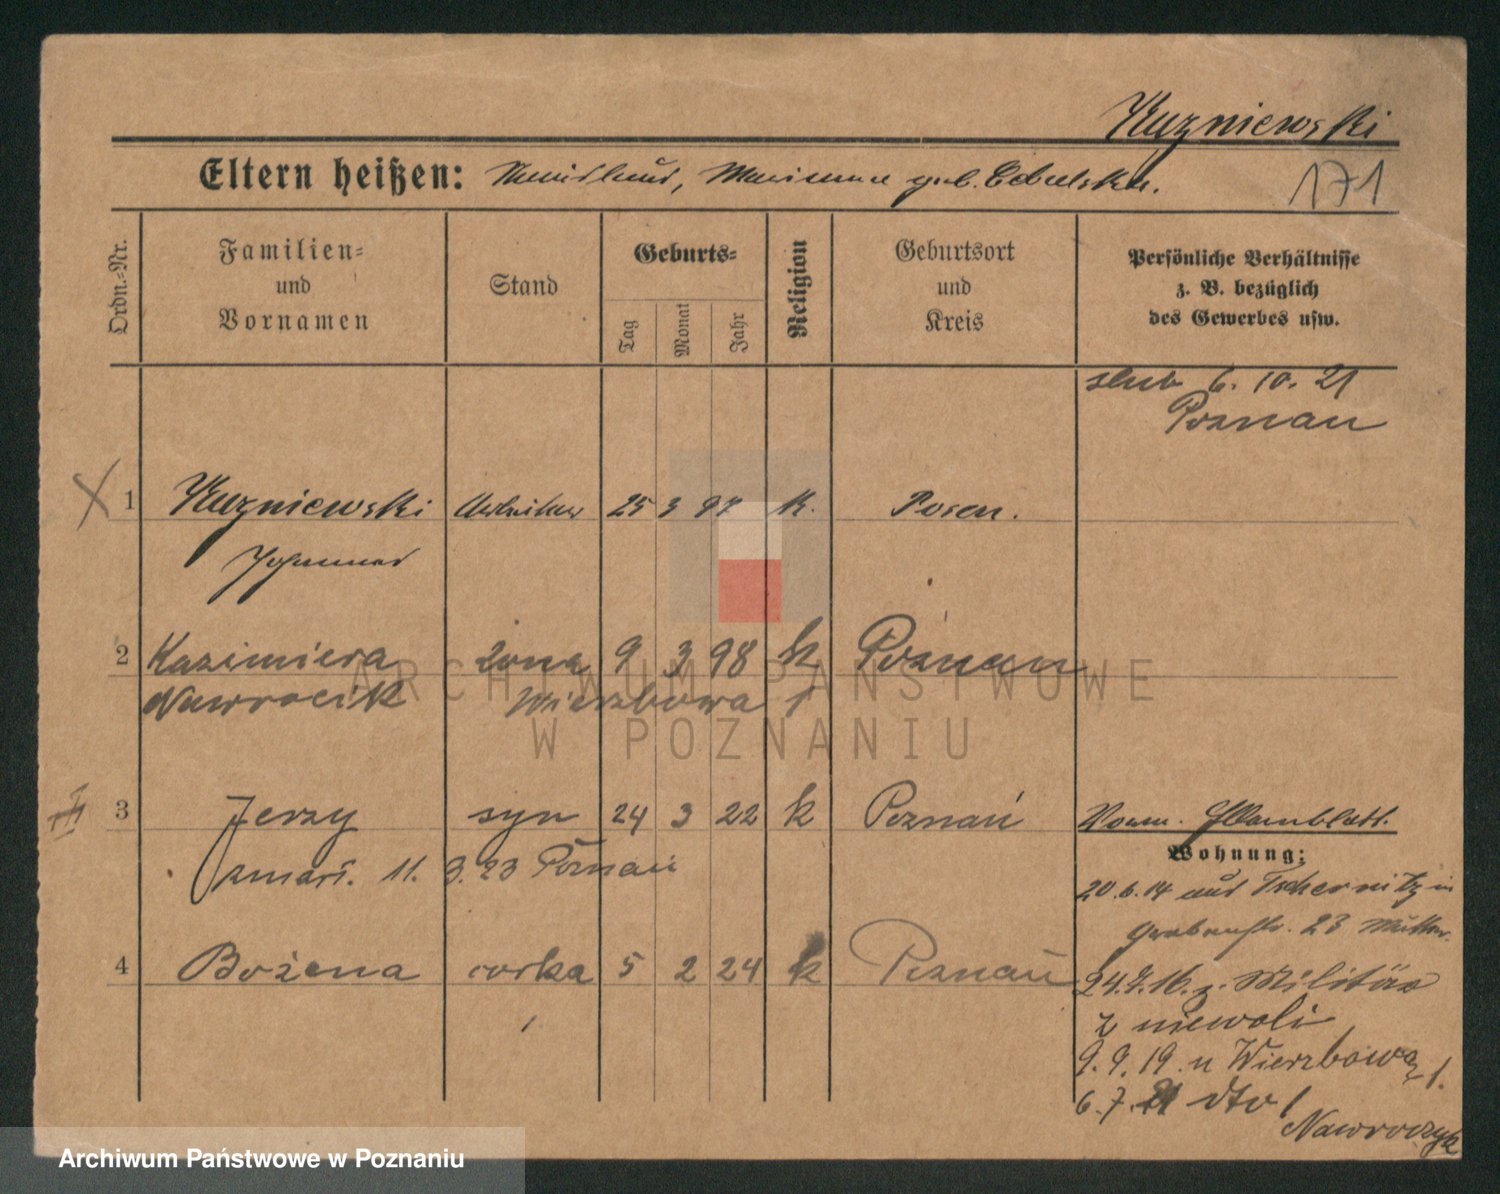 Kuzniewski
Eltern heißen: Marianna geb. Cebulska.
171
Ordn.=Nr.
Familien=
und
Vornamen
Stand
Geburts=
Tag
Monat
Jahr
Religion
Geburtsort
und
Kreis
Persönliche Verhältnisse
z. B. bezüglich
des Gewerbes usw.
slub 6. 10. 21
Poznań
1 Kuzniewski Arbeiter 25 3 97 k. Posen.
Johannes
2 Kazimiera żona 9 3 98 k Poznań
Nawrocik Wierzbowa 1
3 Jerzy syn 24 3 22 k Poznań
zmarł. 11. 3. 23 Poznań
4 Bożena corka 5 2 24 k Poznań
Wohnung:
20. 6. 14 aus Tschernitz in
Grabenstr. 23 Mutter.
24. 9. 16. z. Militär
z niewoli
9. 9. 19. u Wierzbowa 1.
6. 7. 21 dto 1
Nawroczyk
ARCHIWUM PAŃSTWOWE
W POZNANIU
Archiwum Państwowe w Poznaniu